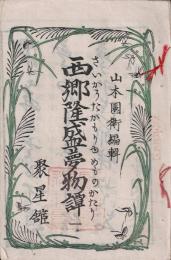 山本園衛編輯
さいがうたかもりゆめものがたり
西郷隆盛夢物譚 一
聚星館